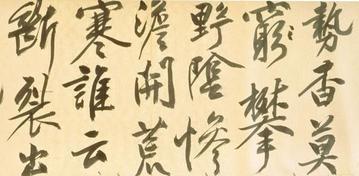 勢杳莫
窮攀
野陰慘
澹開荒
寒誰云
斷裂出